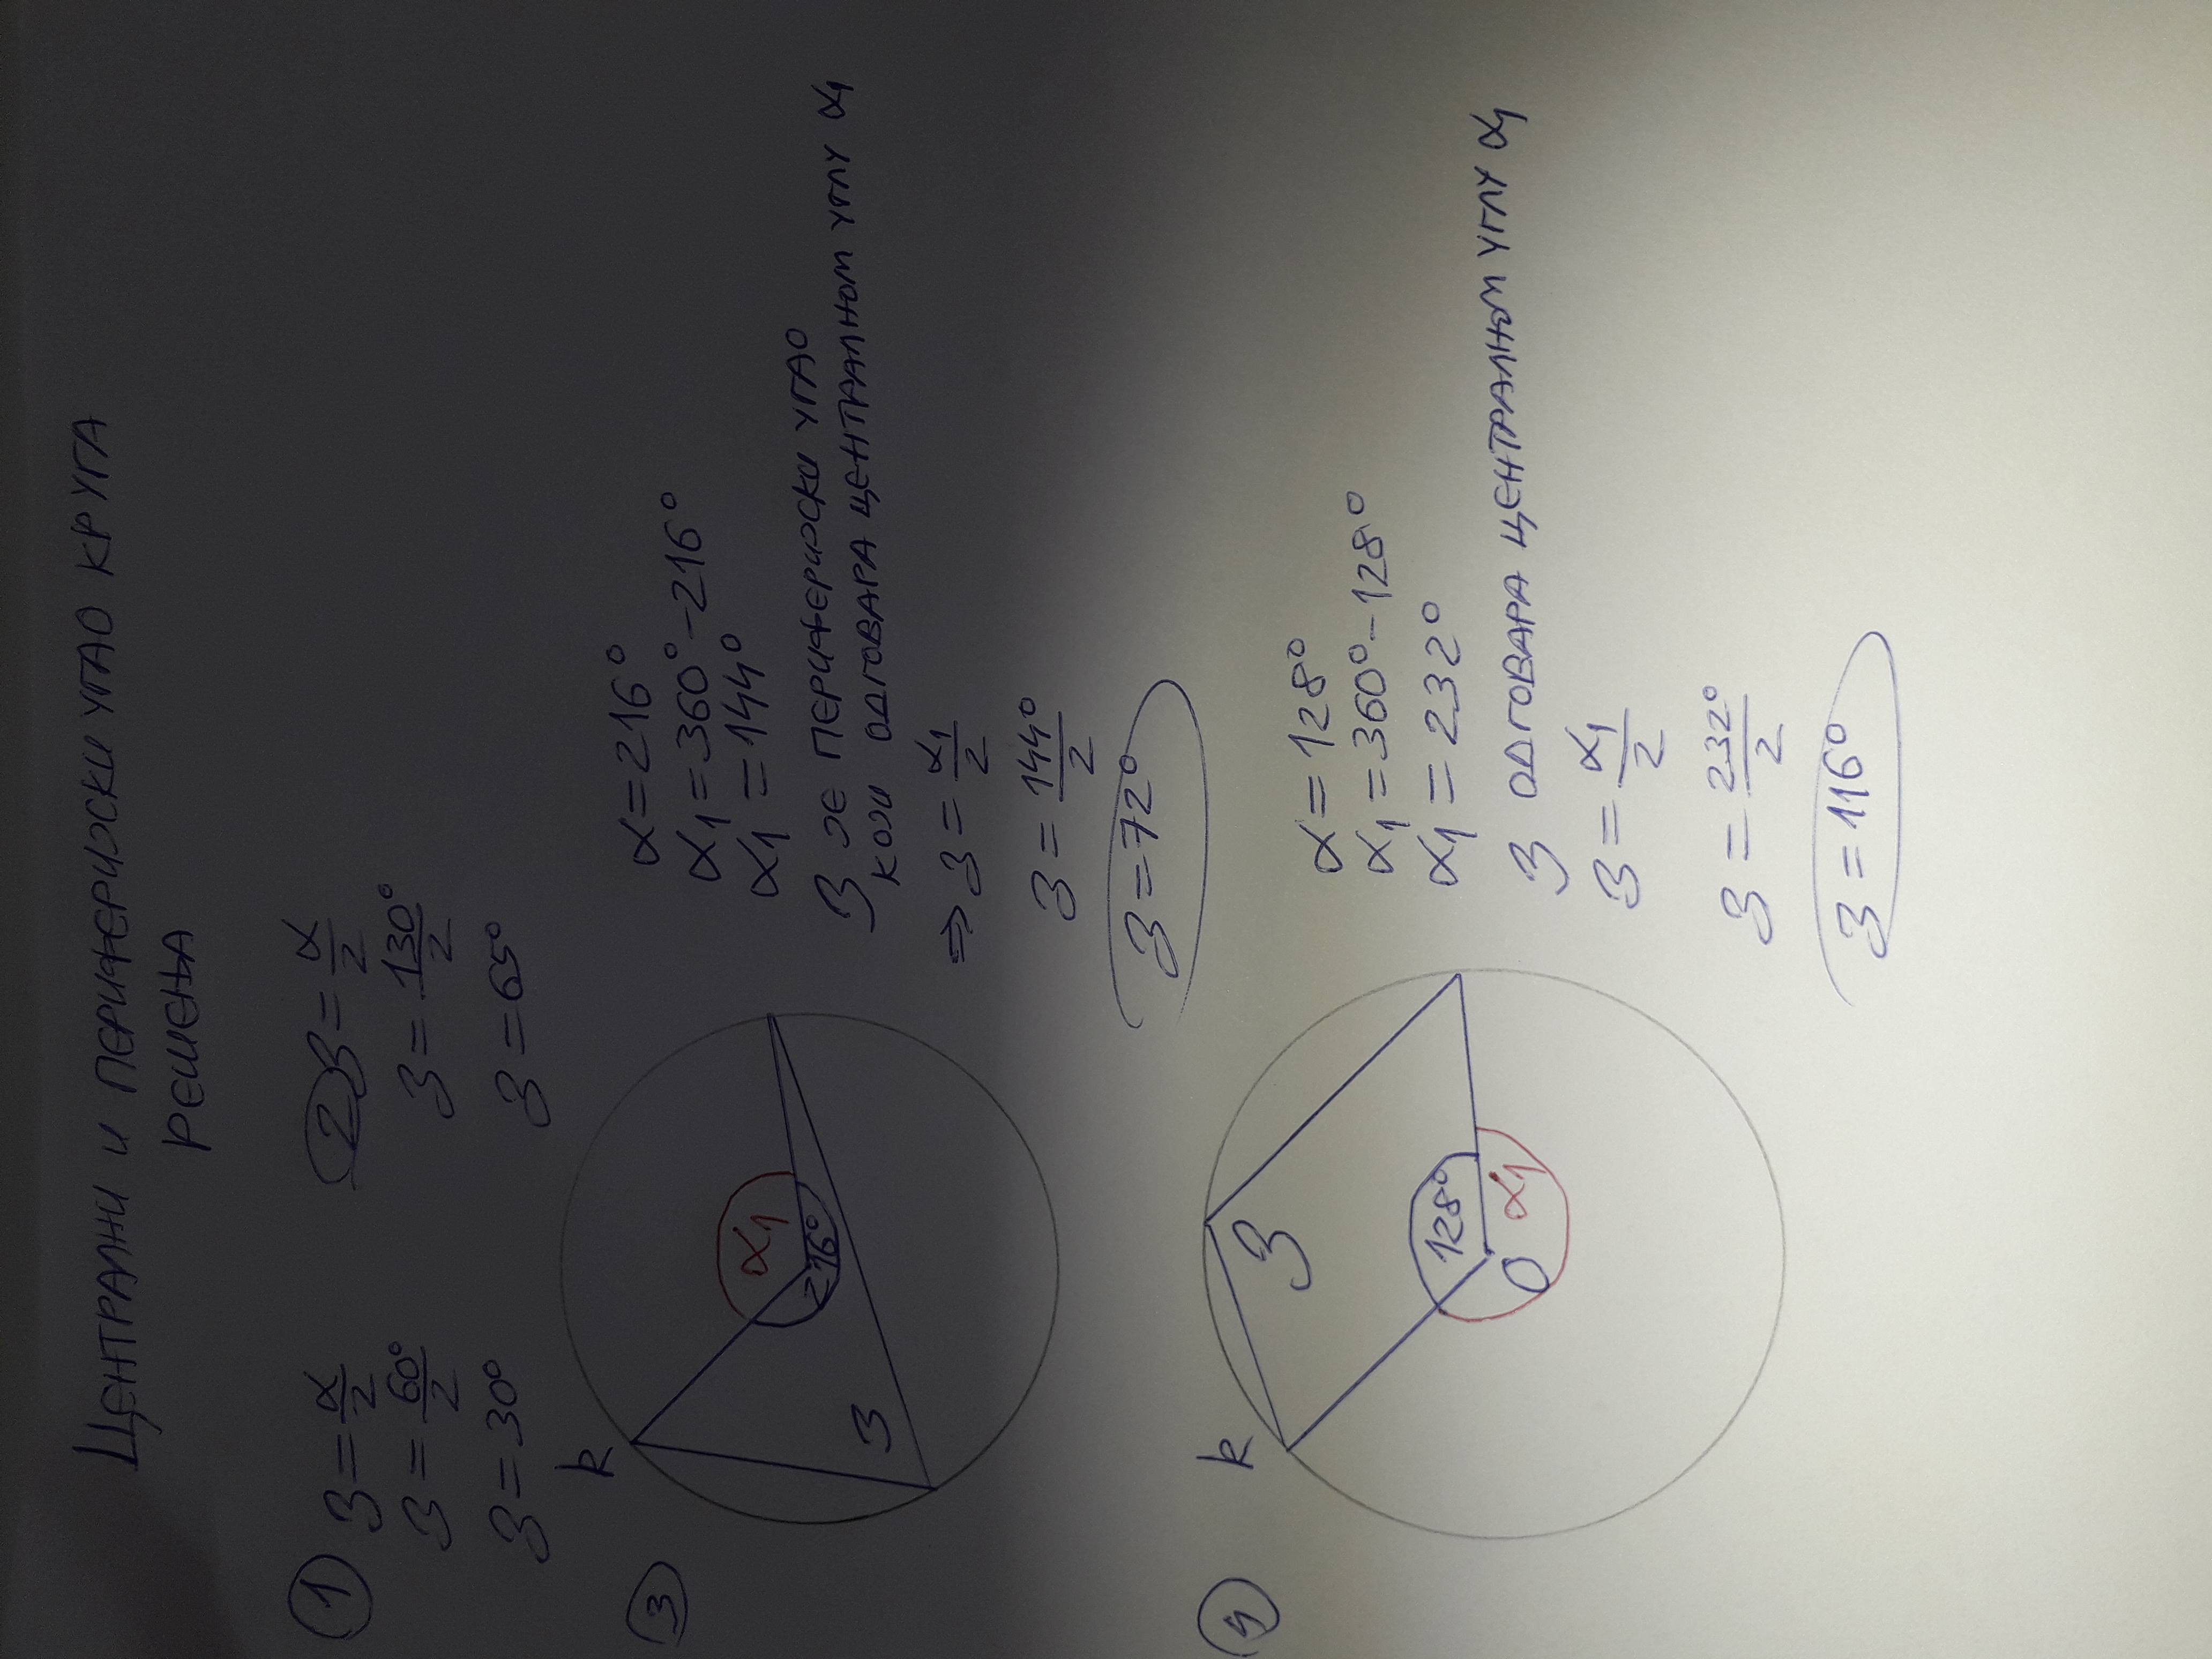 ЦЕНТРАЛНИ И ПЕРИФЕРИЈСКИ УГАО КРУГА
РЕШЕЊА
① β = α/2
β = 60°/2
β = 30°
② β = α/2
β = 130°/2
β = 65°
③
k
α1
216°
β
α = 216°
α1 = 360° - 216°
α1 = 144°
β ЈЕ ПЕРИФЕРИЈСКИ УГАО
КОЈИ ОДГОВАРА ЦЕНТРАЛНОМ УГЛУ α1
⇒ β = α1/2
β = 144°/2
β = 72°
④
k
β
128°
O
α1
α = 128°
α1 = 360° - 128°
α1 = 232°
β ОДГОВАРА ЦЕНТРАЛНОМ УГЛУ α1
β = α1/2
β = 232°/2
β = 116°